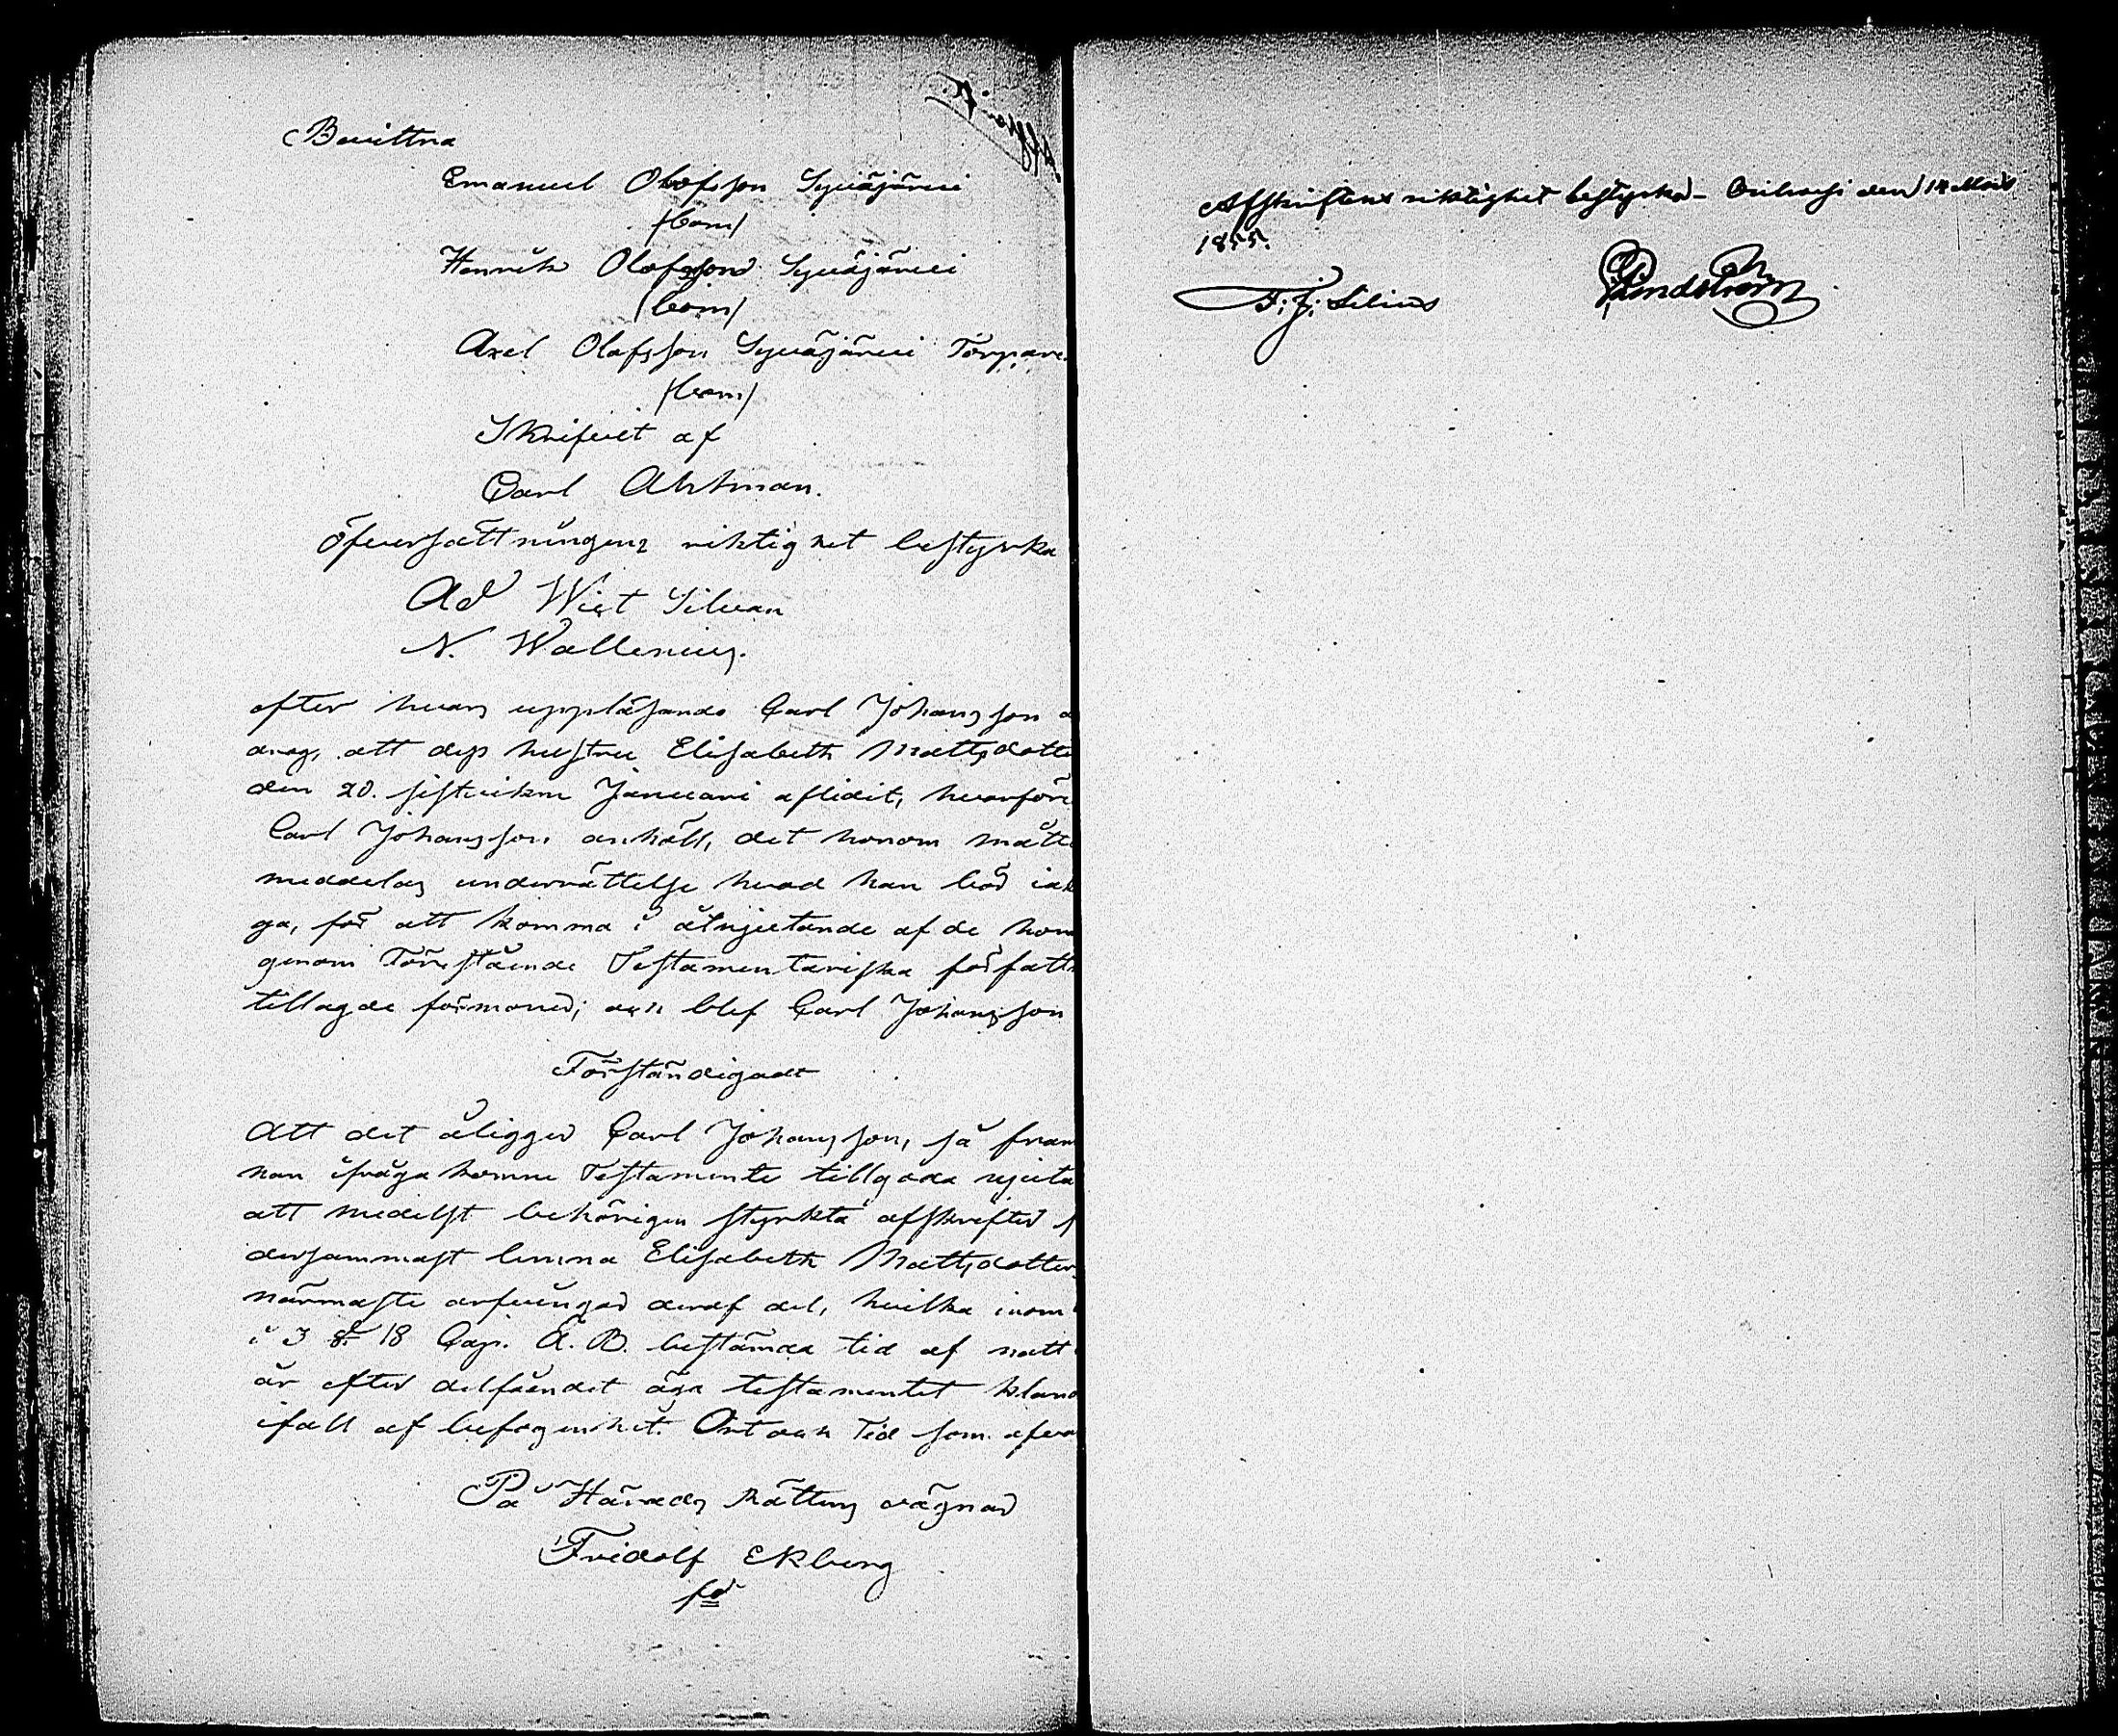 Bevittna
Emanuel Olofsson Syväjärvi
(bom)
Henrik Olofsson Syväjärvi
(bom)
Axel Olofsson Syväjärvi Torpare
(bom)
Skrifvit af
Carl Ahlman.
Öfversättningens riktighet bestyrka
Ad Wict Silvan
N. Wallenius.
efter hvars uppläsande Carl Johansson a
drog, att dess hustru Elisabeth Mattsdotte
den 20. sistvikne Januari aflidit, hvarföre
Carl Johansson anhöll, det honom måtte
meddelas underrättelse hvad han bör iak
ga, för att komma i åtnjutande af de hono
genom Förestående Testamentariska författn
tillagde förmoner; och blef Carl Johansson
Förständigadt
Att det åligger Carl Johansson, så fram
han ifrågakomne Testamente tillgodo njuta
att medelst behörigen styrkta afskrifter
dersammast lemna Elisabeth Mattsdotters
närmaste arfvingar deraf del, hvilka inom
i 3 § 18 Cap. Ä. B. bestämda tid af natt
år efter delfåendet äga testamentet kland
ifall af befogenhet. Ort och Tid som ofva
På Härads Rättens vägnar
Fridolf Ekberg
Afskriftens riktighet bestyrka _ den 14 Mars
1855.
F. J. Silius Lindström